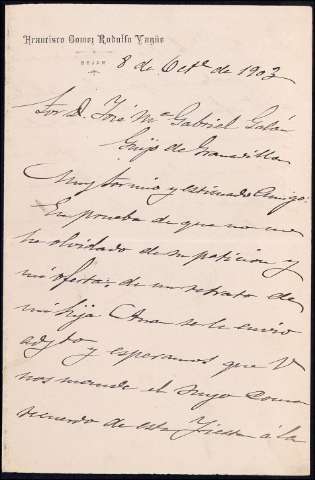 Francisco Gomez Rodulfo Yagüe
BEJAR
8 de Octe de 1903
Sor D. José Ma Gabriel Galán
Guijo de Granadilla
Muy sor mio y estimado amigo:
En prueba de que no me
he olvidado de su peticion y
mi oferta, de un retrato de
mi hija Ana se lo envio
adjto y esperamos que V
nos mande el suyo como
recuerdo de esta fiesta á la